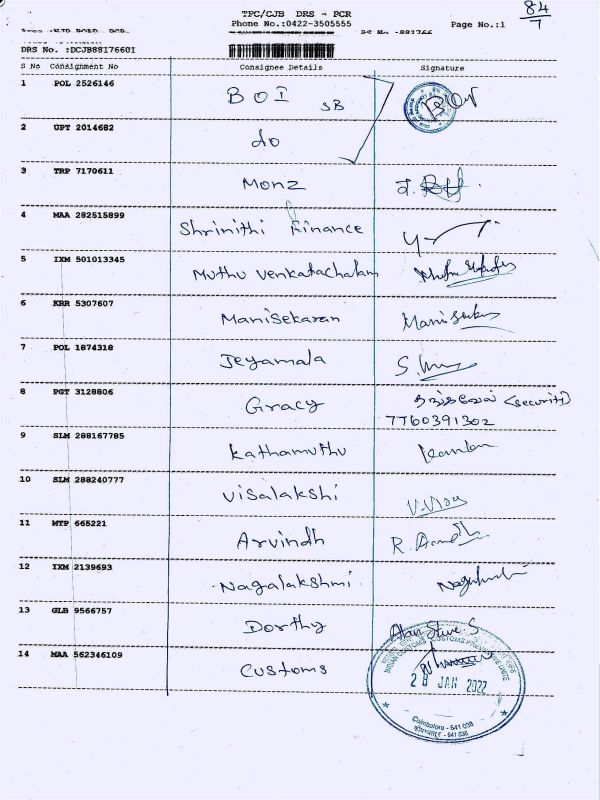 84
7
TPC/CJB DRS - PCR
Phone No.:0422-3505555
Page No.:1
DRS No. :DCJB88176601
S No Consignment No Consignee Details Signature
1 POL 2526146 BOI SB
2 UPT 2014682 do
3 TRP 7170611 Monz
4 MAA 282515899 Shrinithi Finance
5 IXM 501013345 Muthu Venkatachalam
6 KRR 5307607 Manisekaran
7 POL 1874318 Jeyamala
8 PGT 3128806 Gracy (security)
7760391302
9 SLM 288167785 Kathamuthu
10 SLM 288240777 Visalakshi
11 MTP 665221 Arvindh
12 IXM 2139693 Nagalakshmi
13 GLB 9566757 Dorthy Alan Steve S
14 MAA 562346109 Customs
28 JAN 2022
Coimbatore - 641 038